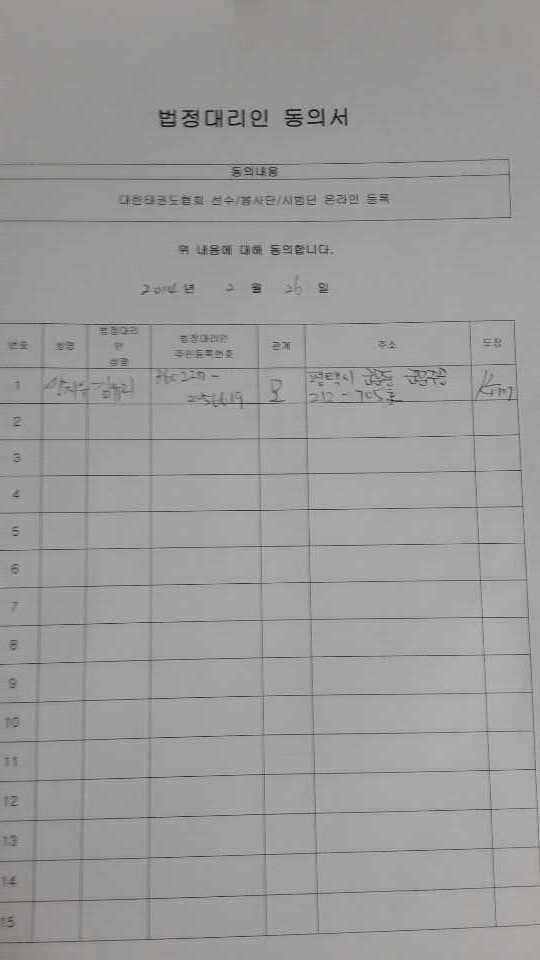 법정대리인 동의서
동의내용
대한태권도협회 선수/봉사단/시범단 온라인 등록
위 내용에 대해 동의합니다.
2014 년 2 월 26 일
번호 성명 법정대리인 성명 법정대리인 주민등록번호 관계 주소 도장
1 모 평택시 Kim
212 - 705호
2
3
4
5
6
7
8
9
10
11
12
13
14
15